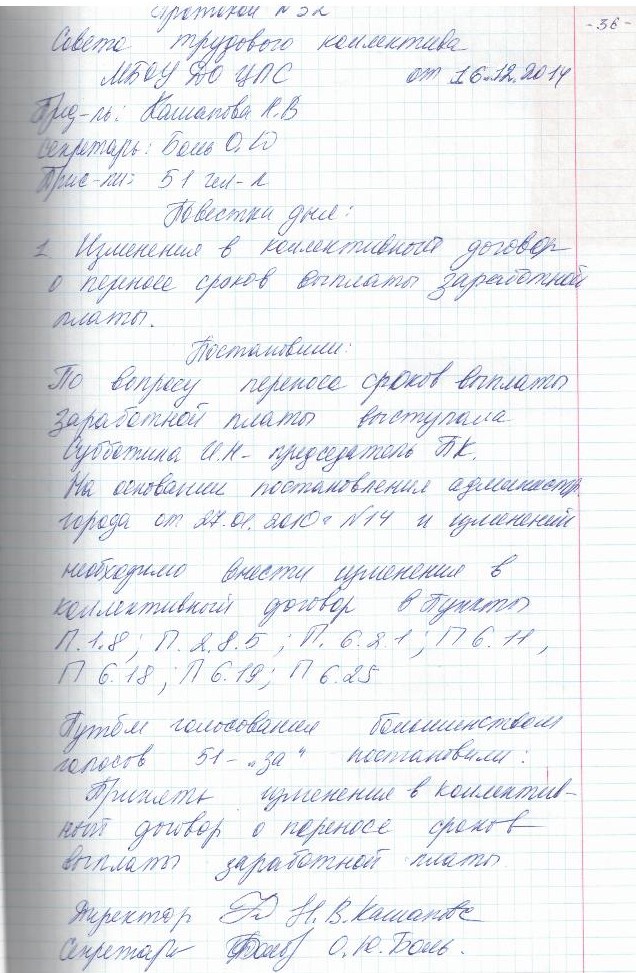 Протокол №32
- 36 -
Совета трудового коллектива
МБОУ ДО ЦПС от 16.12.2014
Пред-ль: Кашапова Н.В
Секретарь: Боль О.Ю
Прис-ли: 51 чел-к
Повестка дня:
1 Изменения в коллективный договор
о переносе сроков выплаты заработной
платы.
Постановили:
По вопросу переноса сроков выплаты
заработной платы выступала
Субботина И.Н- председатель ПК.
На основании постановления администр.
города от 27.01.2010г №14 и изменений
необходимо внести изменения в
коллективный договор в пункты
П.1.8; П.2.8.5; П. 6.2.1; П 6.11,
П 6.18; П 6.19; П 6.25
Путём голосования большинством
голосов 51- „за“ постановили:
Принять изменение в коллектив-
ный договор о переносе сроков
выплаты заработной платы
Директор Н.В.Кашапова
Секретарь О.Ю.Боль.